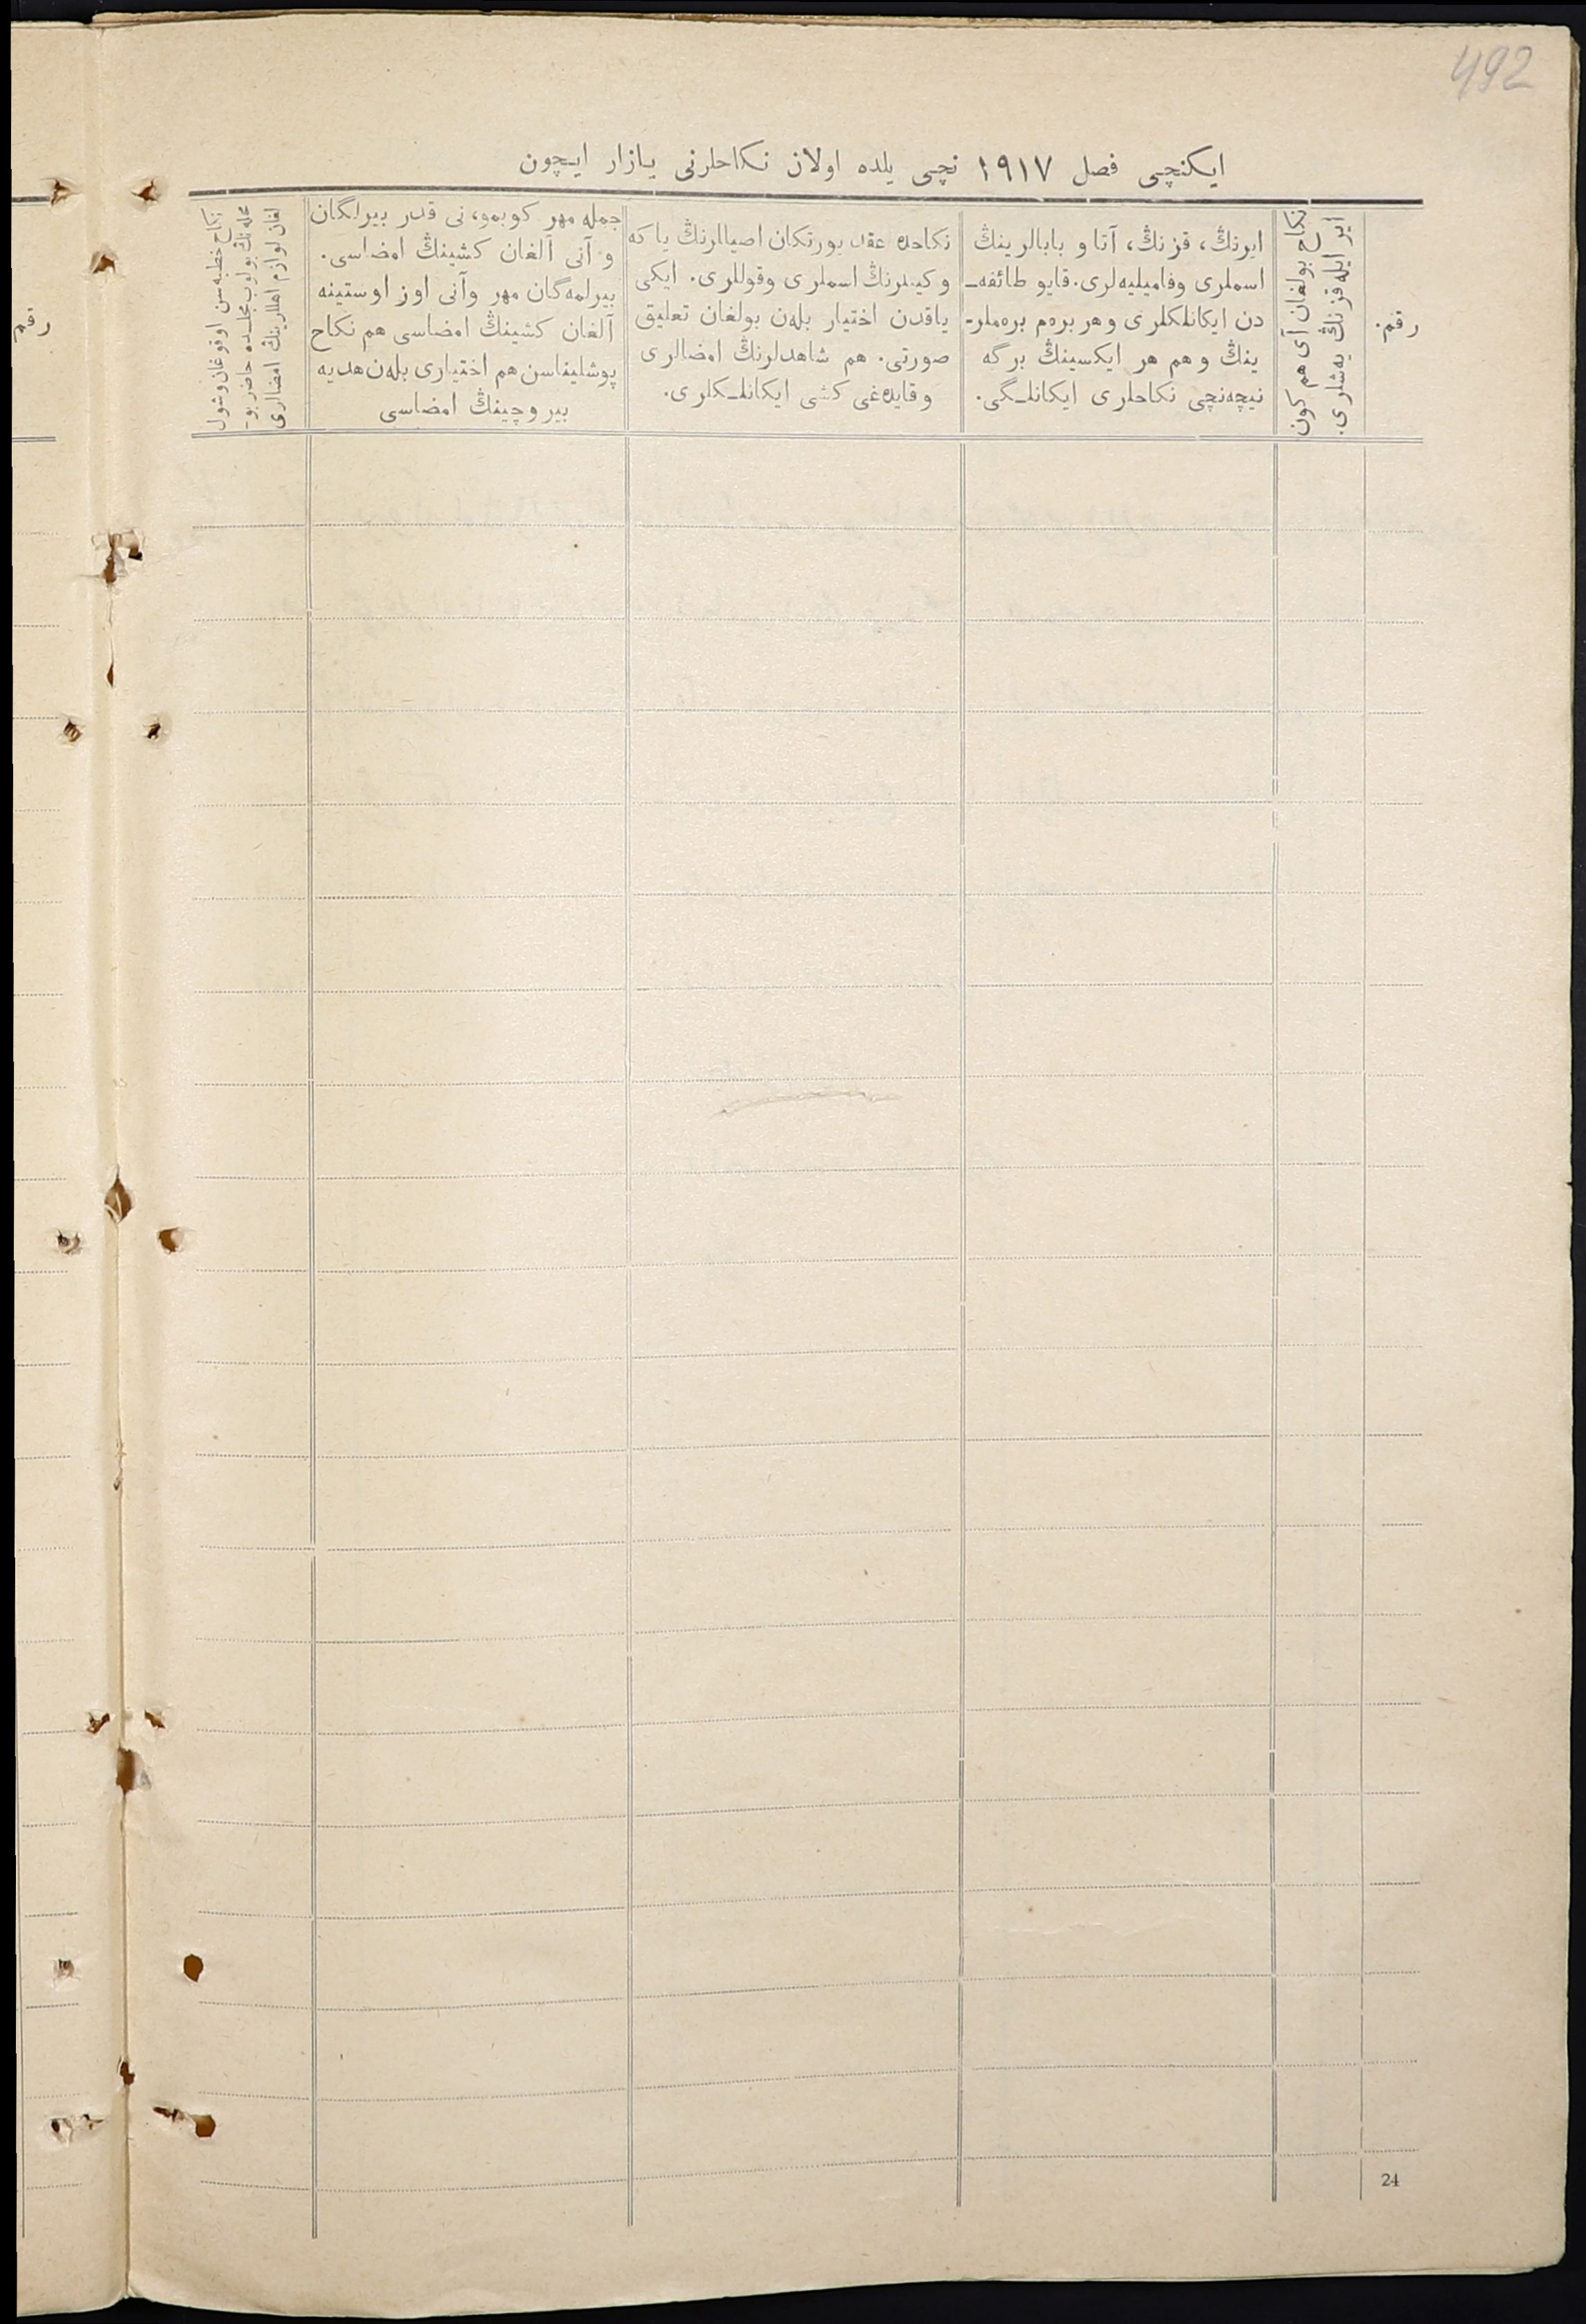 492
ایکنچی فصل ۱۹۱۷ نچی یلده اولان نکاحلرنی یازار ایچون
رقم
ایر ایله قزنڭ یه‌شلری.
نکاح بولغان آی هم کون
ایرنڭ، قزنڭ، آتا و بابالرینڭ
اسملری وفامیلیه‌لری. قایو طائفه‌ـ
دن ایکانلکلری وهر بره‌م بره‌ملر-
ینڭ وهم هر ایکسینڭ برگه
نیچه‌نچی نکاحلری ایکانلـگی.
نکاحده عقد یورتکان اصیاالرنڭ یا که
وکیللرنڭ اسملری وقوللری. ایکی
یاقدن اختیار بله‌ن بولغان تعلیق
صورتی. هم شاهدلرنڭ امضالری
وقایده‌غی کشی ایکانلـکلری.
جمله مهر کوبمو، نی قدر بیرلگان
و آنی آلغان کشینڭ امضاسی.
بیرلمه‌گان مهر وآنی اوز اوستینه
آلغان کشینڭ امضاسی هم نکاح
پوشلیناسن هم اختیاری بله‌ن هدیه
بیروچینڭ امضاسی
نکاح خطبه‌سن اوقوغان وشول
محله‌نڭ بولوب مجلسده حاضر بو-
لغان لوازم اهللرینڭ امضالری
رقم
24